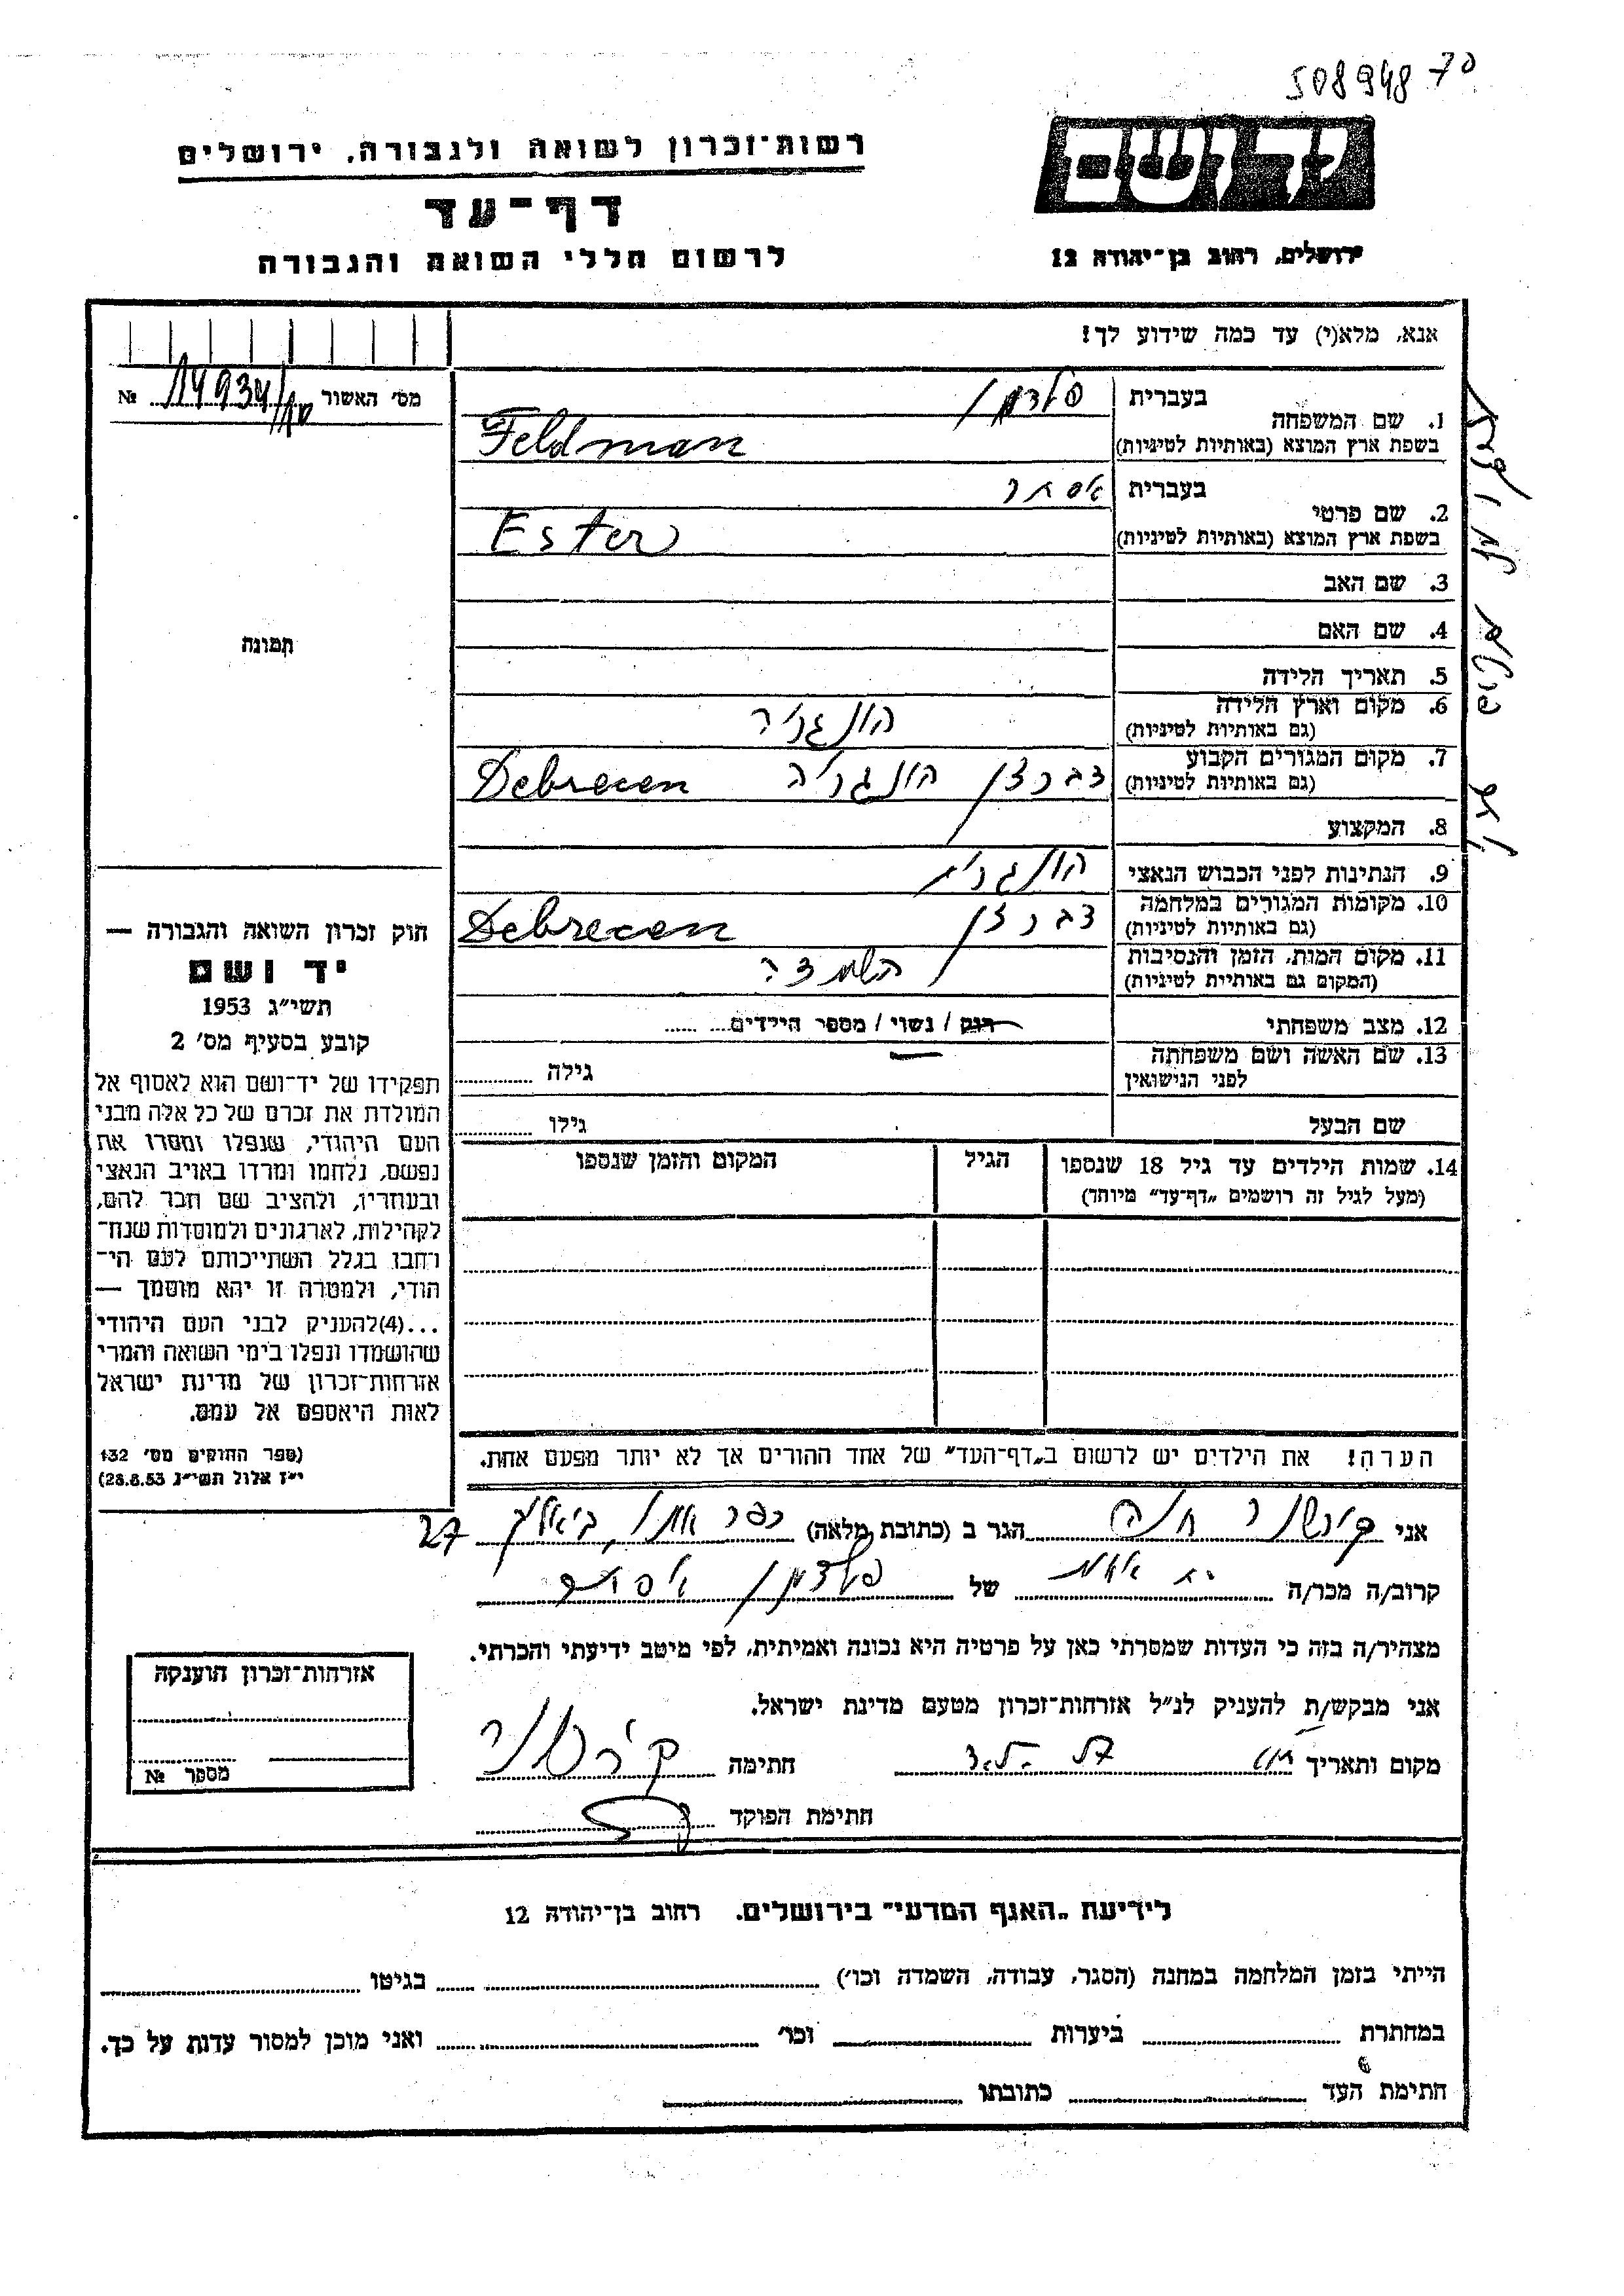 508948 70
יד ושם
רשות־זכרון לשואה ולגבורה, ירושלים
דף־עד
לרשום חללי השואה והגבורה
ירושלים, רחוב בן־יהודה 12
אנא, מלא(י) עד כמה שידוע לך!
מס' האשור № 14934
1. שם המשפחה בעברית פלדמן
בשפת ארץ המוצא (באותיות לטיניות) Feldman
2. שם פרטי בעברית אסתר
בשפת ארץ המוצא (באותיות לטיניות) Ester
3. שם האב
4. שם האם
5. תאריך הלידה
6. מקום וארץ הלידה הונגריה
(גם באותיות לטיניות)
7. מקום המגורים הקבוע דברצן הונגריה Debrecen
(גם באותיות לטיניות)
8. המקצוע
9. הנתינות לפני הכבוש הנאצי הונגרית
10. מקומות המגורים במלחמה דברצן Debrecen
(גם באותיות לטיניות)
11. מקום המות, הזמן והנסיבות השמדה
(המקום גם באותיות לטיניות)
12. מצב משפחתי רווק / נשוי / מספר הילדים
13. שם האשה ושם משפחתה גילה
לפני הנישואין
שם הבעל גילו
14. שמות הילדים עד גיל 18 שנספו הגיל המקום והזמן שנספו
(מעל לגיל זה רושמים „דף־עד” מיוחד)
הערה! את הילדים יש לרשום ב„דף־העד” של אחד ההורים אך לא יותר מפעם אחת.
תמונה
חוק זכרון השואה והגבורה —
יד ושם
תשי״ג 1953
קובע בסעיף מס' 2
תפקידו של יד־ושם הוא לאסוף אל
המולדת את זכרם של כל אלה מבני
העם היהודי, שנפלו ומסרו את
נפשם, נלחמו ומרדו באויב הנאצי
ובעוזריו, ולהציב שם וזכר להם,
לקהילות, לארגונים ולמוסדות שנח־
רבו בגלל השתייכותם לעם הי־
הודי, ולמטרה זו יהא מוסמך —
...(4)להעניק לבני העם היהודי
שהושמדו ונפלו בימי השואה והמרי
אזרחות־זכרון של מדינת ישראל
לאות היאספם אל עמם.
(ספר החוקים מס' 132
י״ז אלול תשי״ג 28.8.53)
אני קירשנר חיה הגר ב (כתובת מלאה) כפר אתא, ביאליק 27
קרוב/ה מכר/ה של פלדמן אסתר
מצהיר/ה בזה כי העדות שמסרתי כאן על פרטיה היא נכונה ואמיתית, לפי מיטב ידיעתי והכרתי.
אני מבקש/ת להעניק לנ״ל אזרחות־זכרון מטעם מדינת ישראל.
מקום ותאריך חתימה קירשנר
חתימת הפוקד
אזרחות־זכרון הוענקה
מספר №
לידיעת „האגף המדעי” בירושלים. רחוב בן־יהודה 12
הייתי בזמן המלחמה במחנה (הסגר, עבודה, השמדה וכו') בגיטו
במחתרת ביערות וכו' ואני מוכן למסור עדות על כך.
חתימת העד כתובתו